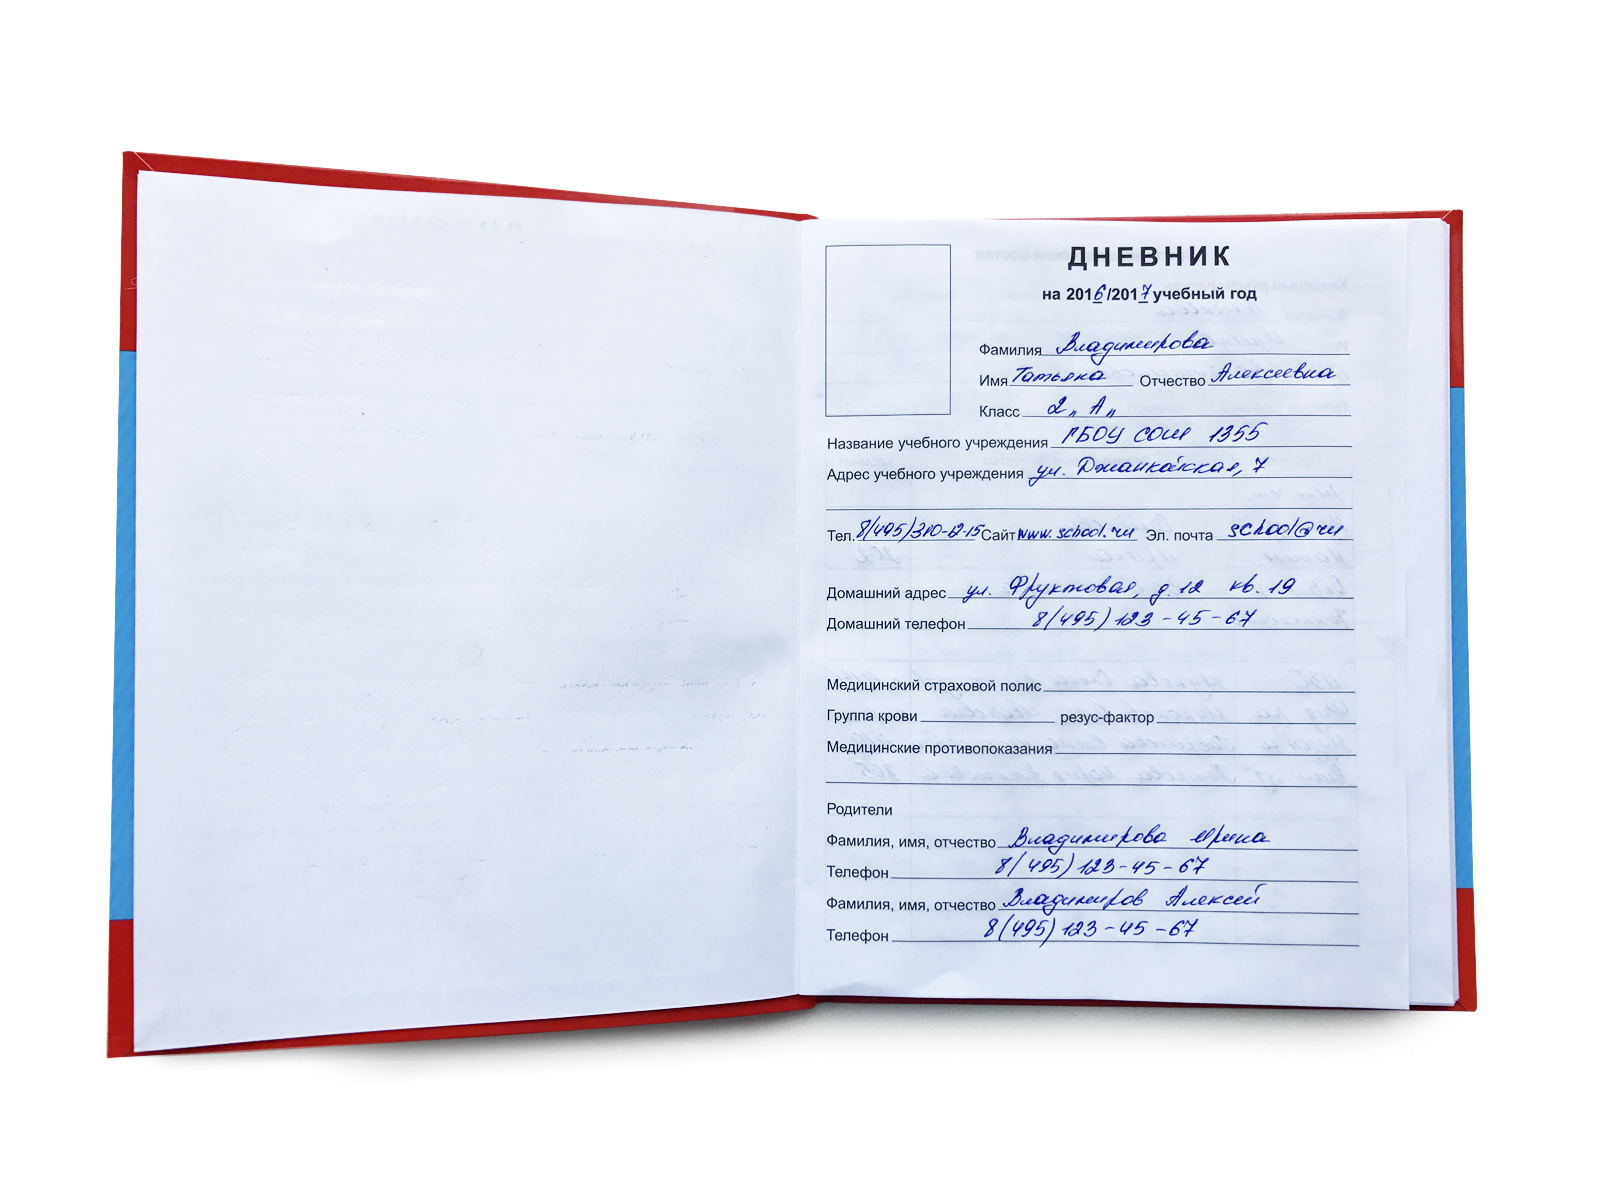 ДНЕВНИК
на 2016/2017 учебный год
Фамилия Владимирова
Имя Татьяна Отчество Алексеевна
Класс 2 „А„
Название учебного учреждения ГБОУ СОШ 1355
Адрес учебного учреждения ул. Джанкойская, 7
Тел. 8(495)310-12-15 Сайт www.school.ru Эл. почта school@ru
Домашний адрес ул. Фруктовая, д. 12 кв. 19
Домашний телефон 8(495) 123-45-67
Медицинский страховой полис
Группа крови резус-фактор
Медицинские противопоказания
Родители
Фамилия, имя, отчество Владимирова Ирина
Телефон 8(495) 123-45-67
Фамилия, имя, отчество Владимиров Алексей
Телефон 8(495) 123-45-67